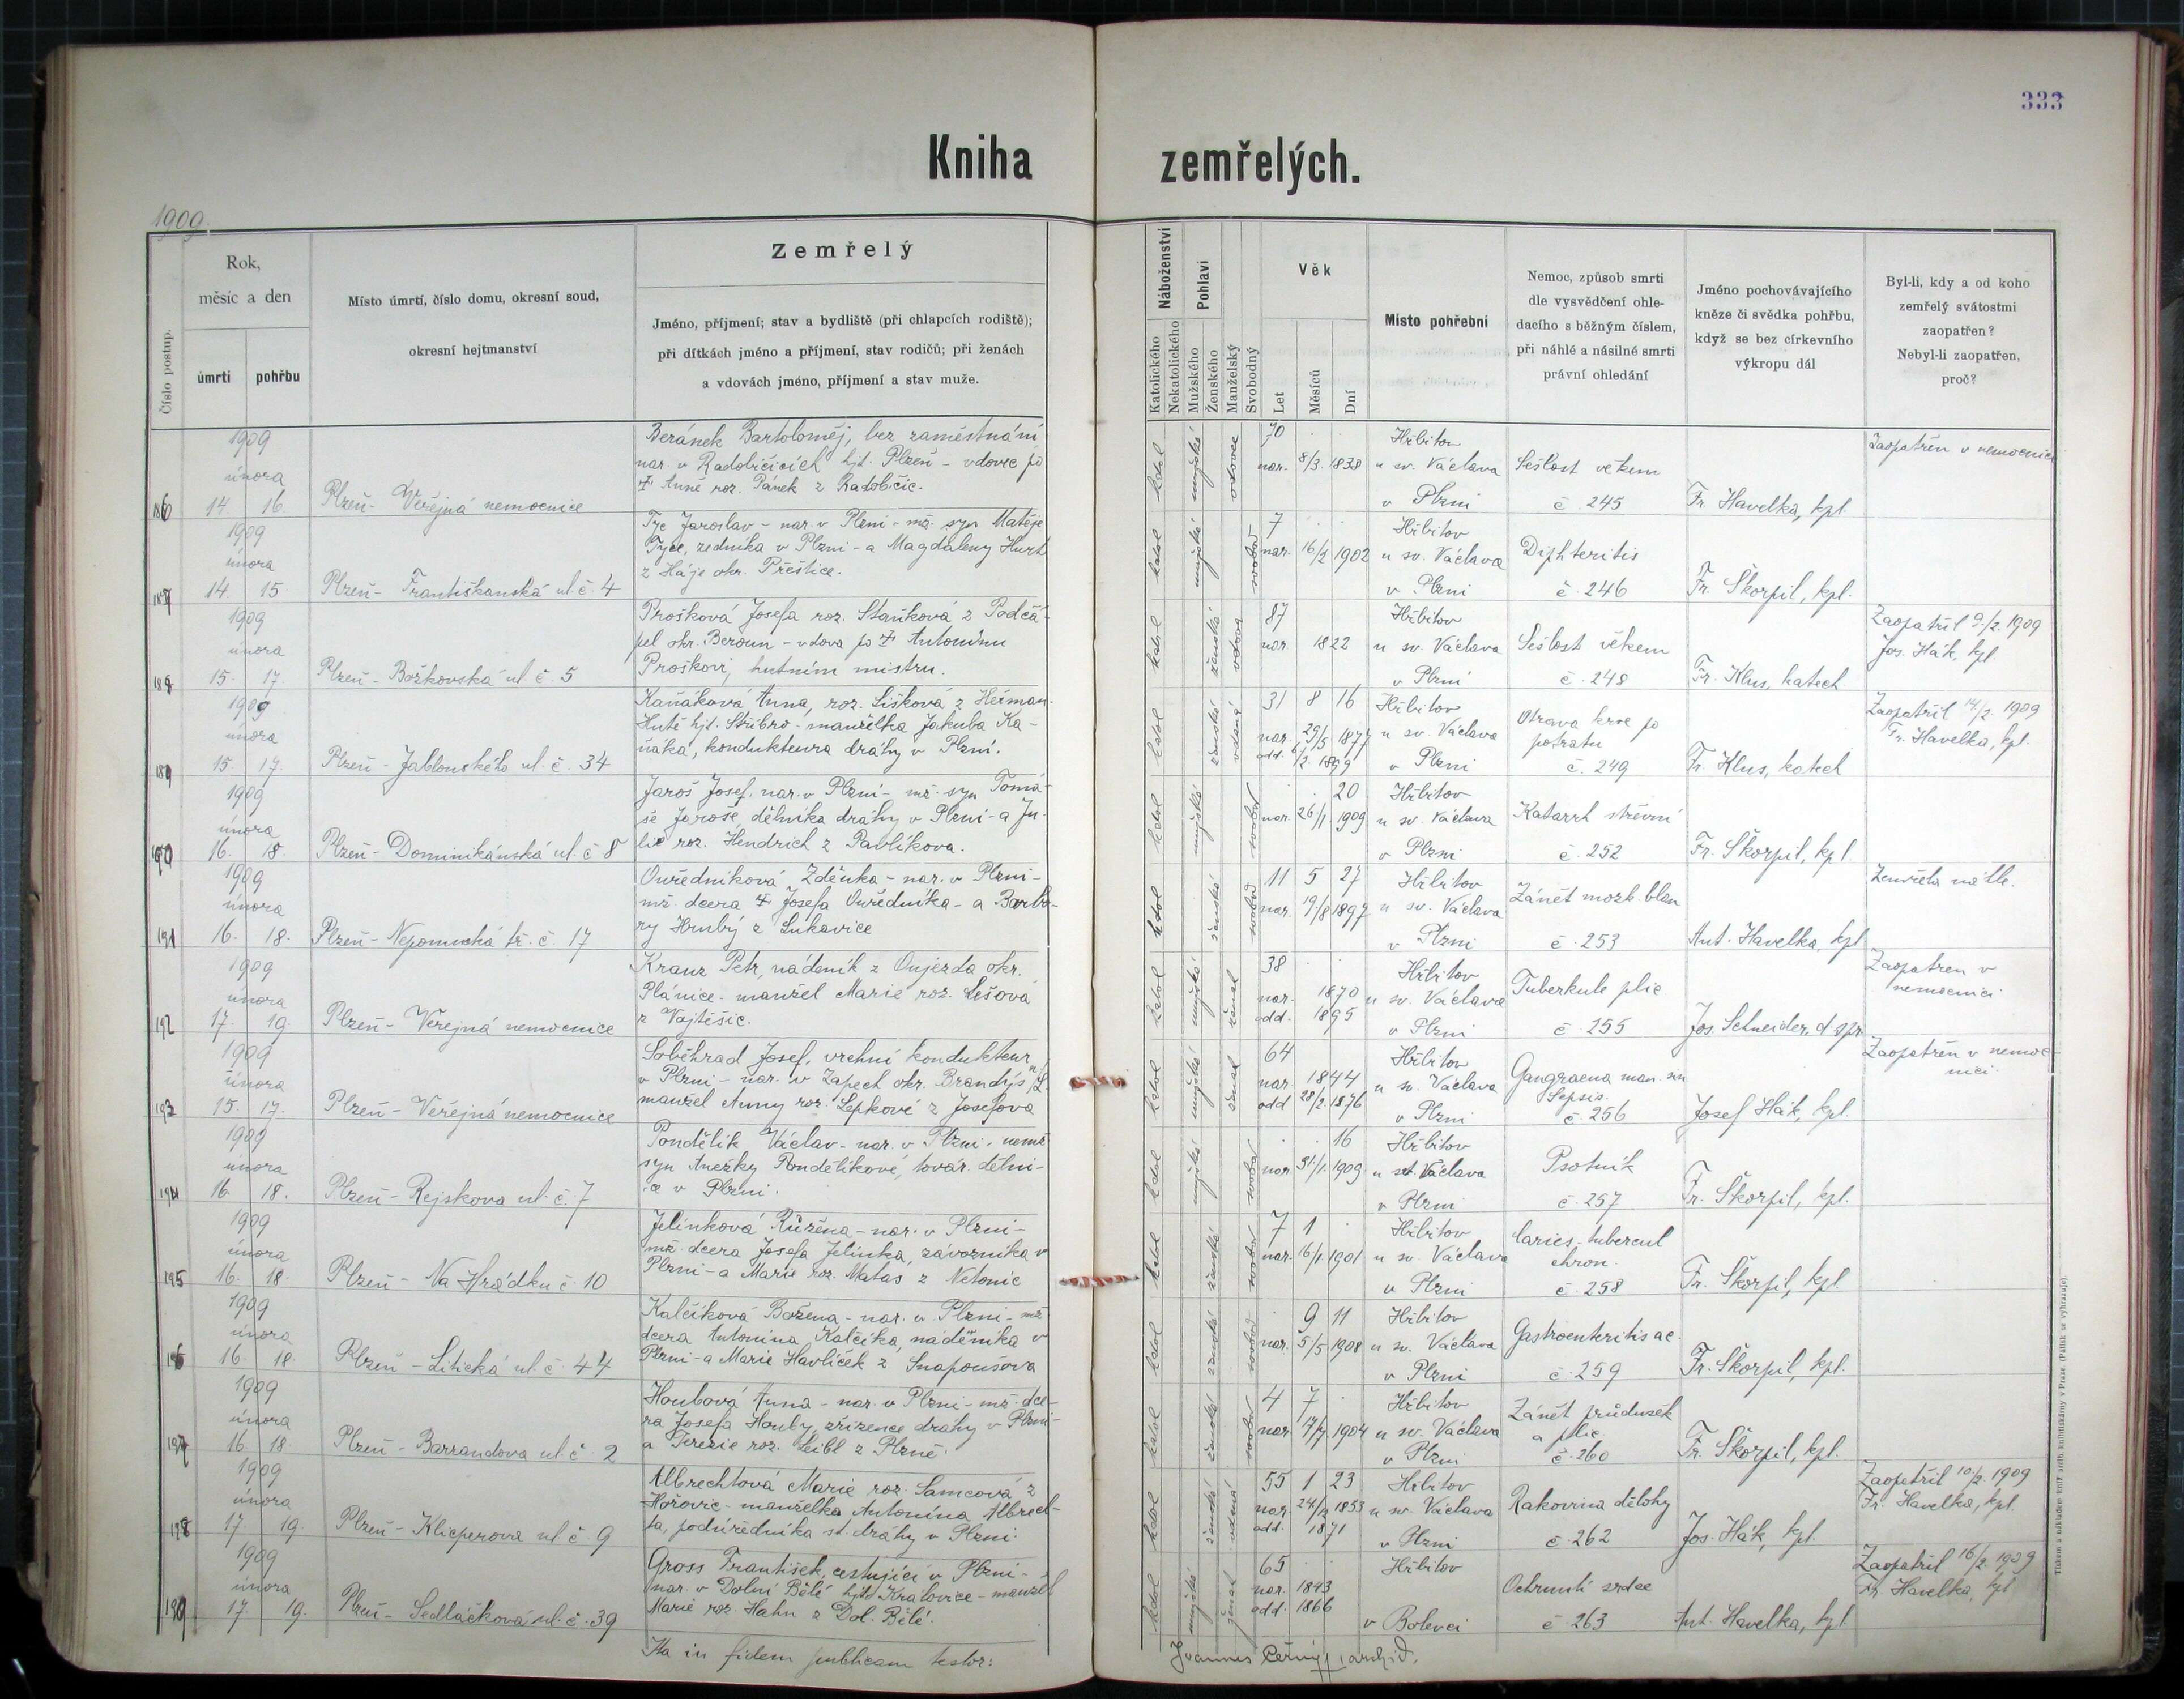 333
Kniha zemřelých.
1909.
Číslo postup.
Rok,
měsíc a den
úmrtí
pohřbu
Místo úmrtí, číslo domu, okresní soud,
okresní hejtmanství
Zemřelý
Jméno, příjmení; stav a bydliště (při chlapcích rodiště);
při dítkách jméno a příjmení, stav rodičů; při ženách
a vdovách jméno, příjmení a stav muže.
Náboženství
Katolického
Nekatolického
Pohlaví
Mužského
Ženského
Manželský
Svobodný
Věk
Let
Měsíců
Dní
Místo pohřební
Nemoc, způsob smrti
dle vysvědčení ohle-
dacího s běžným číslem,
při náhlé a násilné smrti
právní ohledání
Jméno pochovávajícího
kněze či svědka pohřbu,
když se bez církevního
výkropu dál
Byl-li, kdy a od koho
zemřelý svátostmi
zaopatřen?
Nebyl-li zaopatřen,
proč?
186
1909
února
14. 16.
Plzeň - Veřejná nemocnice
Beránek Bartoloměj, bez zaměstnání
nar. v Radobičicích hjt. Plzeň - vdovec po
† Anně roz. Pánek z Radobčic.
katol
mužské
vdovec
70
nar. 8/3. 1838
Hřbitov
u sv. Václava
v Plzni
Sešlost věkem
č. 245
Fr. Havelka, kpl.
Zaopatřen v nemocnici
187
1909
února
14. 15.
Plzeň - Františkanská ul. č. 4
Tyc Jaroslav - nar. v Plzni - mž. syn Matěje
Tyce, zedníka v Plzni - a Magdaleny Hurt
z Háje okr. Přeštice.
katol
mužské
svobod
7
nar. 16/2 1902
Hřbitov
u sv. Václava
v Plzni
Diphteritis
č. 246
Fr. Škorpil, kpl.
188
1909
února
15. 17.
Plzeň - Božkovská ul. č. 5
Prošková Josefa roz. Staňková z Podčá-
pel okr. Beroun - vdova po † Antonínu
Proškovi, hutním mistru.
katol
ženské
vdova
87
nar. 1822
Hřbitov
u sv. Václava
v Plzni
Sešlost věkem
č. 248
Fr. Klus, katech
Zaopatřil 9/2. 1909
Jos. Hák, kpl.
189
1909
února
15 17.
Plzeň - Jablonského ul. č. 34
Kaňáková Anna, roz. Lišková z Heřman.
Hutě hjt. Stříbro - manželka Jakuba Ka-
ňáka, kondukteura dráhy v Plzni.
katol
ženské
vdaná
31 8 16
nar. 29/5 1877
odd. 6/2. 1899
Hřbitov
u sv. Václava
v Plzni
Otrava krve po
potratu
č. 249
Fr. Klus, katech
Zaopatřil 14/2. 1909
Fr. Havelka, kpl.
190
1909
února
16. 18.
Plzeň - Dominikánská ul. č. 8
Jaroš Josef, nar. v Plzni - mž. syn Tomá-
še Jaroše, dělníka dráhy v Plzni - a Ju-
lie roz. Hendrich z Pavlíkova.
katol
mužské
svobod
20
nar. 26/1. 1909
Hřbitov
u sv. Václava
v Plzni
Katarrh střevní
č. 252
Fr. Škorpil, kpl.
191
1909
února
16. 18.
Plzeň - Nepomucká tř. č. 17
Ouředníková Zděnka - nar. v Plzni -
mž. dcera † Josefa Ouředníka - a Barbo-
ry Hrubý z Lukavice
katol
ženské
svobod
11 5 27
nar. 19/8 1897
Hřbitov
u sv. Václava
v Plzni
Zánět mozk. blan
č. 253
Ant. Havelka, kpl.
Zemřela náhle.
192
1909
února
17. 19.
Plzeň - Veřejná nemocnice
Kranz Petr, nádeník z Oujezda okr.
Plánice - manžel Marie roz. Lešová
z Vojtěšic.
katol
mužské
ženat
38
nar. 1870
odd. 1895
Hřbitov
u sv. Václava
v Plzni
Tuberkule plic
č. 255
Jos. Schneider, d. spr.
Zaopatřen v
nemocnici
193
1909
února
15. 17.
Plzeň - Veřejná nemocnice
Soběhrad Josef, vrchní kondukteur
v Plzni - nar. v Zápech okr. Brandýs n/L
manžel Anny roz. Lepkové z Josefova
katol
mužské
ženat
64
nar. 1844
odd 28/2. 1876
Hřbitov
u sv. Václava
v Plzni
Gangraena man. sin
Sepsis.
č. 256
Josef Hák, kpl.
Zaopatřen v nemoc-
nici
194
1909
února
16. 18.
Plzeň - Rejskova ul. č. 7
Pondělík Václav - nar. v Plzni - nemž
syn Anežky Pondělíkové, továr. dělni-
ce v Plzni.
katol
mužské
svobod
16
nar. 31/1. 1909
Hřbitov
u sv. Václava
v Plzni
Psotník
č. 257
Fr. Škorpil, kpl.
195
1909
února
16. 18.
Plzeň - Na Hrádku č. 10
Jelínková Růžena - nar. v Plzni -
mž. dcera Josefa Jelínka, závorníka v
Plzni - a Marie roz. Matas z Netonic
katol
ženské
svobod
7 1
nar. 16/1. 1901
Hřbitov
u sv. Václava
v Plzni
Caries tubercul
chron.
č. 258
Fr. Škorpil, kpl.
196
1909
února
16. 18.
Plzeň - Litická ul. č. 44
Kalčíková Božena - nar. v Plzni - mž
dcera Antonína Kalčíka, nádeníka v
Plzni - a Marie Havlíček z Snapoušova
katol
ženské
svobod
9 11
nar. 5/5 1908
Hřbitov
u sv. Václava
v Plzni
Gastroenteritis ac.
č. 259
Fr. Škorpil, kpl.
197
1909
února
16. 18
Plzeň - Barrandova ul. č. 2
Houbová Anna - nar. v Plzni - mž. dce-
ra Josefa Houby, zřízence dráhy v Plzni -
a Terezie roz. Leibl z Plzně.
katol
ženské
svobod
4 7
nar. 17/7. 1904
Hřbitov
u sv. Václava
v Plzni
Zánět průdušek
a plic.
č. 260
Fr. Škorpil, kpl.
198
1909
února
17 19.
Plzeň - Klicperova ul. č. 9
Albrechtová Marie roz. Samcová z
Hořovic - manželka Antonína Albrech-
ta, podúředníka st. dráhy v Plzni.
katol
ženské
vdaná
55 1 23
nar. 24/12 1853
odd. 1871
Hřbitov
u sv. Václava
v Plzni
Rakovina dělohy
č. 262
Jos. Hák, kpl.
Zaopatřil 10/2. 1909
Fr. Havelka, kpl.
199
1909
února
17 19.
Plzeň - Sedláčkova ul. č. 39
Gross František, cestující v Plzni -
nar. v Dolní Bělé hjt. Kralovice - manžel
Marie roz. Hahn z Dol. Bělé.
katol
mužské
ženat
65
nar. 1843
odd. 1866
Hřbitov
v Bolevci
Ochrnutí srdce
č. 263
Ant. Havelka, kpl
Zaopatřil 16/2. 1909
Fr. Havelka, kpl
Ita in fidem publicam testor:
Joannes Černý, archid.